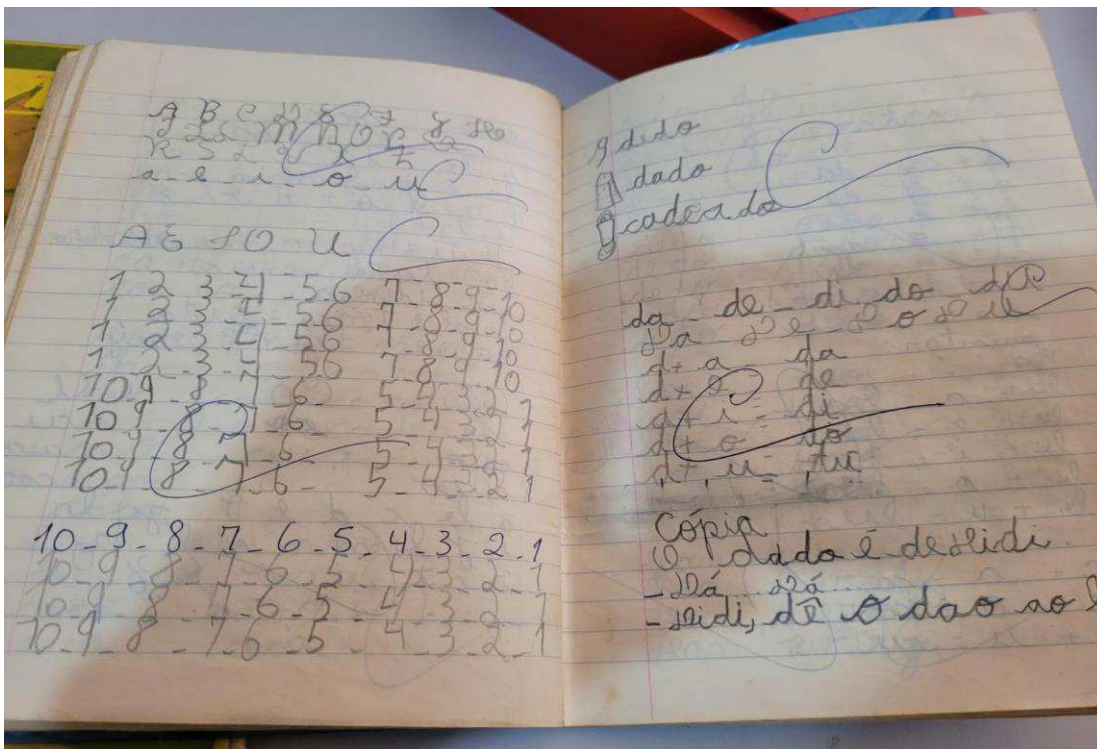 A B C D E F G H
a - e - i - o - u
A E I O U
1 2 3 4 - 5 - 6 7 - 8 - 9 - 10
1 2 3 4 - 5 - 6 7 - 8 - 9 - 10
1 2 3 4 - 5 - 6 7 - 8 - 9 - 10
1 - 2 - 3 - 4 - 5 - 6 7 - 8 - 9 - 10
10 - 9 - 8 - 7 - 6 - 5 - 4 - 3 - 2 - 1
10 - 9 - 8 - 7 - 6 - 5 - 4 - 3 - 2 - 1
10 - 9 - 8 - 7 - 6 - 5 - 4 - 3 - 2 - 1
10 - 9 - 8 - 7 - 6 - 5 - 4 - 3 - 2 - 1
10 - 9 - 8 - 7 - 6 - 5 - 4 - 3 - 2 - 1
10 - 9 - 8 - 7 - 6 - 5 - 4 - 3 - 2 - 1
10 - 9 - 8 - 7 - 6 - 5 - 4 - 3 - 2 - 1
10 - 9 - 8 - 7 - 6 - 5 - 4 - 3 - 2 - 1
dedo
dado
cadeado
da - de - di - do - du
Da - De - Do Du
d + a - da
d + e - de
d + i - di
d + o - do
d + u -
Cópia
O dado é de Didi.
- Dá Dá
- Didi, dê o dao ao